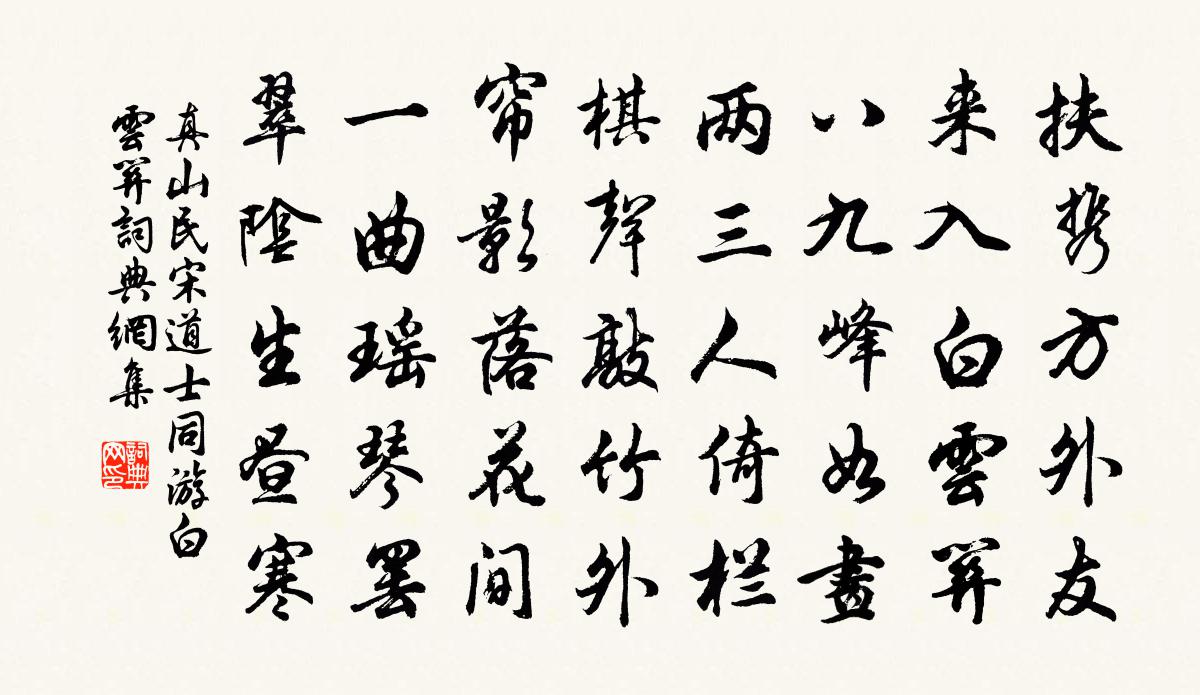 扶携方外友
来入白雲關
八九峰如畫
两三人倚栏
棋聲敲竹外
帘影落花间
一曲瑶琴罢
翠陰生昼寒
真山民宋道士同游白
雲關詞典網集
詞典
网印